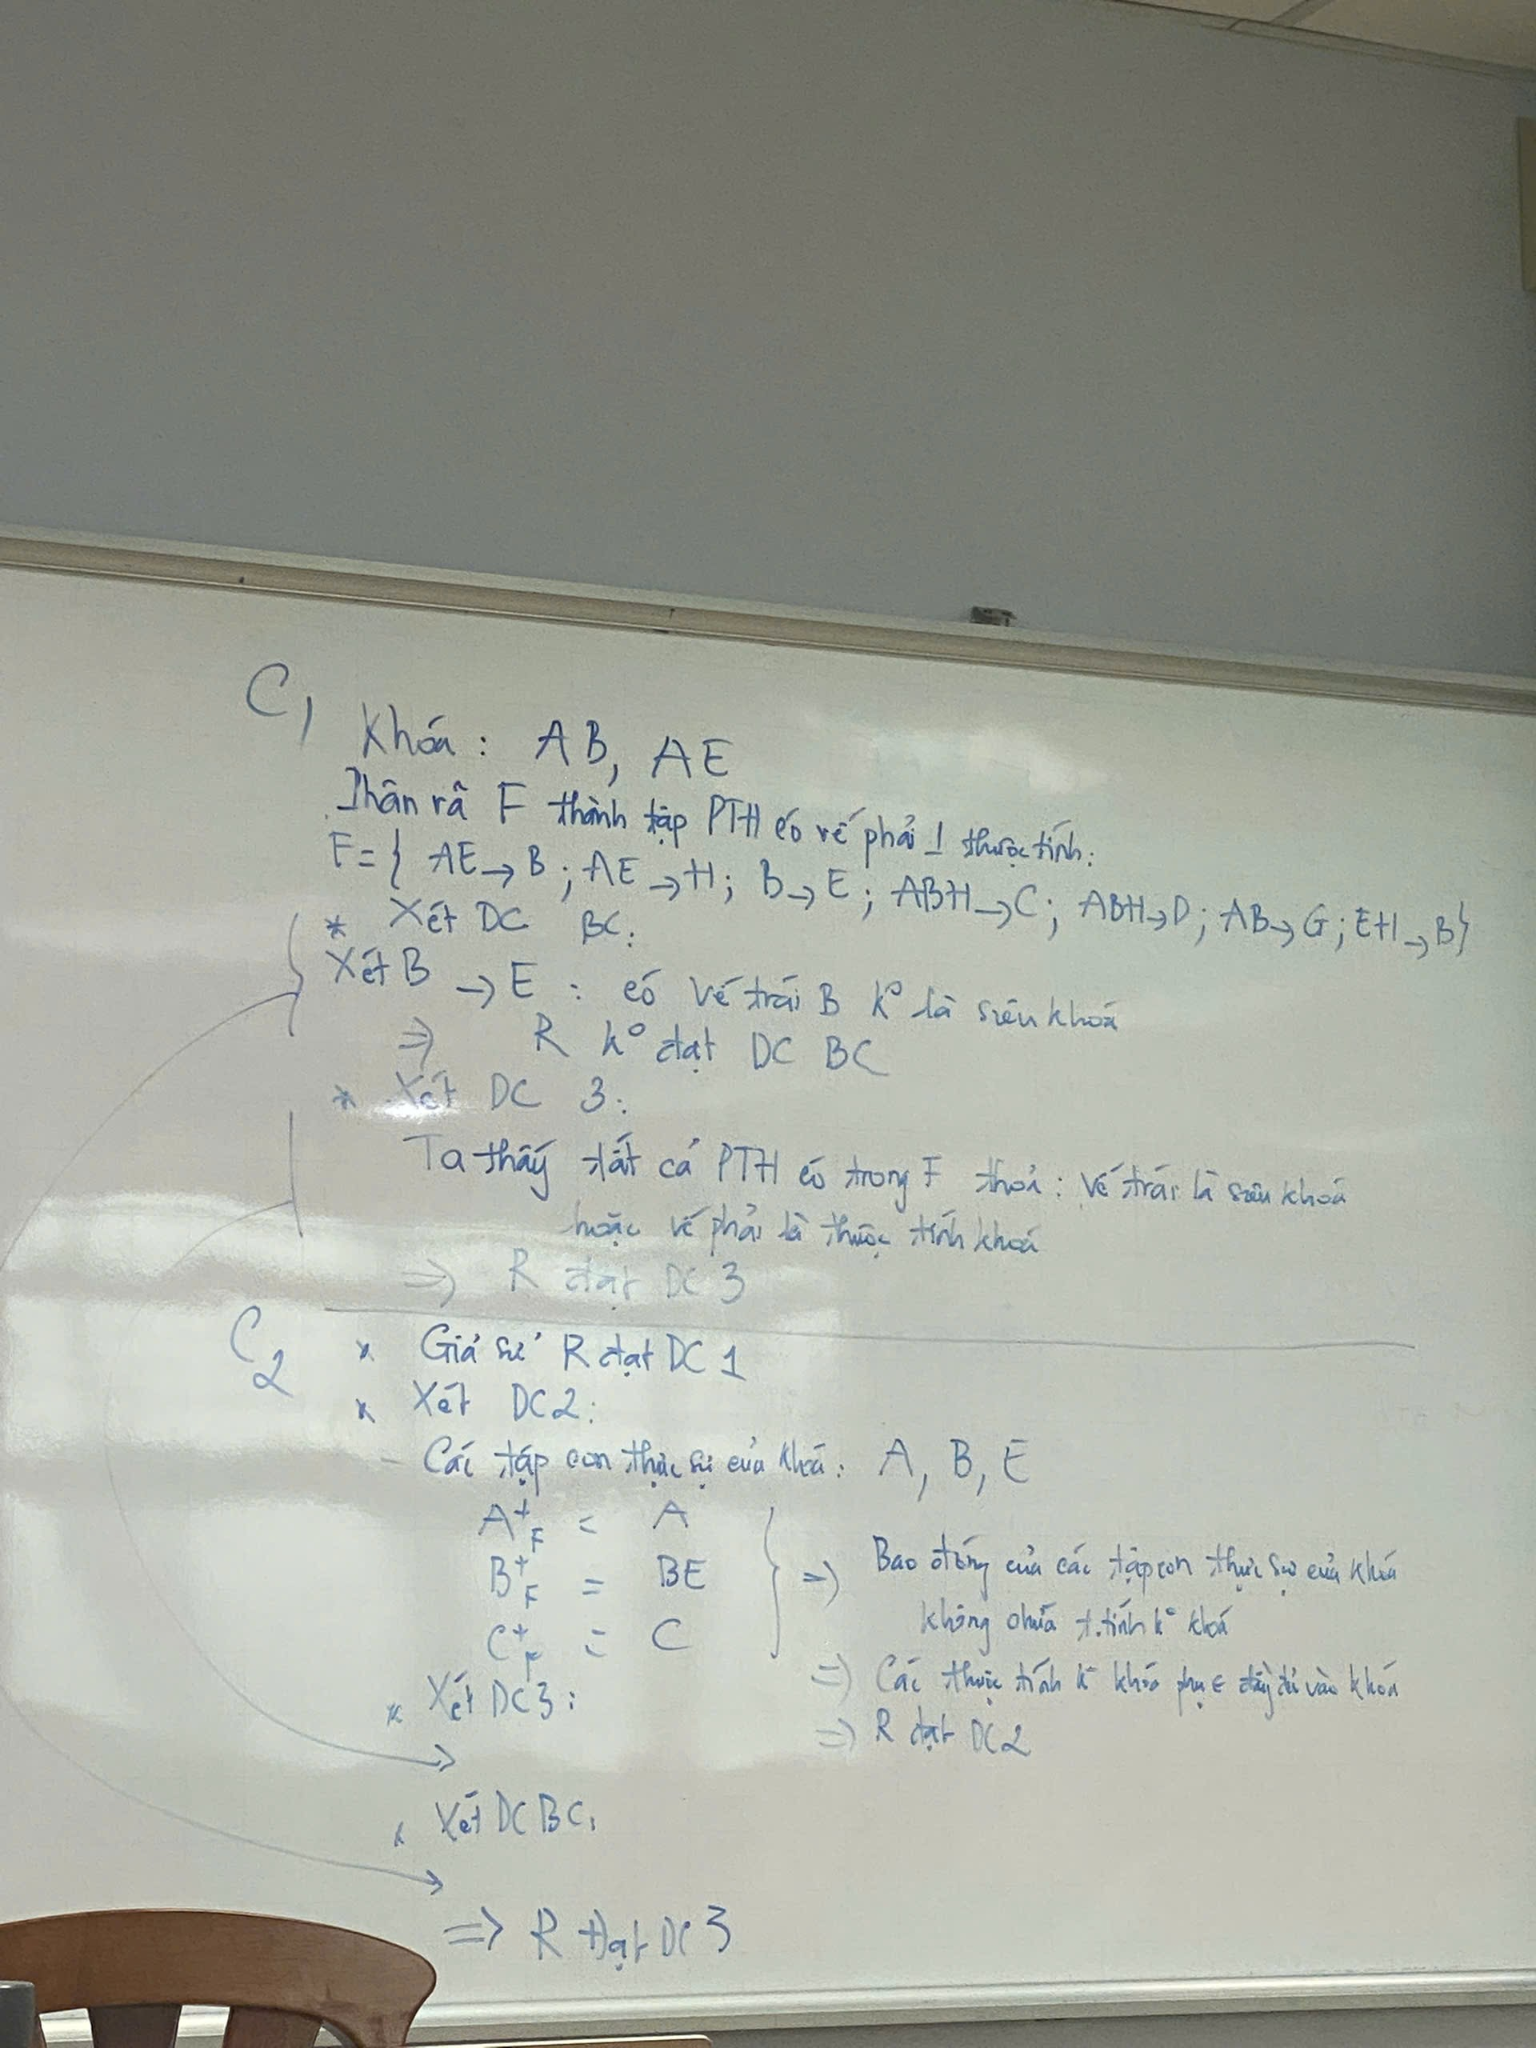 C1
Khóa: AB, AE
Phân rã F thành tập PTH có vế phải 1 thuộc tính:
F = { AE → B ; AE → H ; B → E ; ABH → C ; ABH → D ; AB → G ; EH → B }
* Xét DC BC:
Xét B → E : có vế trái B k° là siêu khoá
⇒ R k° đạt DC BC
* Xét DC 3:
Ta thấy tất cả PTH có trong F thoả : vế trái là siêu khoá
hoặc vế phải là thuộc tính khoá
⇒ R đạt DC 3
C2
* Giả sử R đạt DC 1
* Xét DC2:
- Các tập con thực sự của khoá : A, B, E
A⁺F = A
B⁺F = BE
C⁺F = C
⇒ Bao đóng của các tập con thực sự của khoá
không chứa t.tính k° khoá
⇒ Các thuộc tính k° khoá phụ ∈ đầy đủ vào khoá
⇒ R đạt DC2
* Xét DC3:
* Xét DC BC:
⇒ R Đạt DC 3